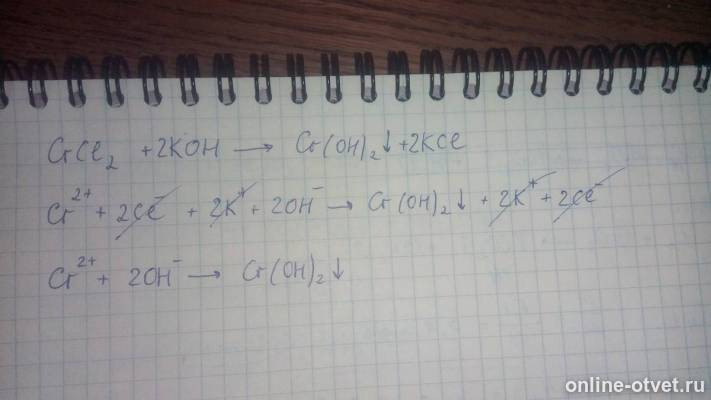 CrCl₂ + 2KOH → Cr(OH)₂↓ + 2KCl
Cr²⁺ + 2Cl⁻ + 2K⁺ + 2OH⁻ → Cr(OH)₂↓ + 2K⁺ + 2Cl⁻
Cr²⁺ + 2OH⁻ → Cr(OH)₂↓
online-otvet.ru